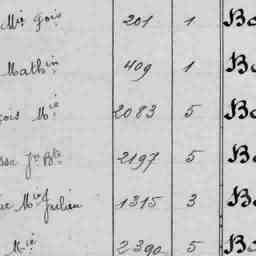 Mie 201 1 Bo
Mathin 409 1 Bo
çois Mie 2083 5 Bo
Jn Bte 2197 5 Bo
Mie Julien 1315 3 Bo
Mie 2390 5 Bo